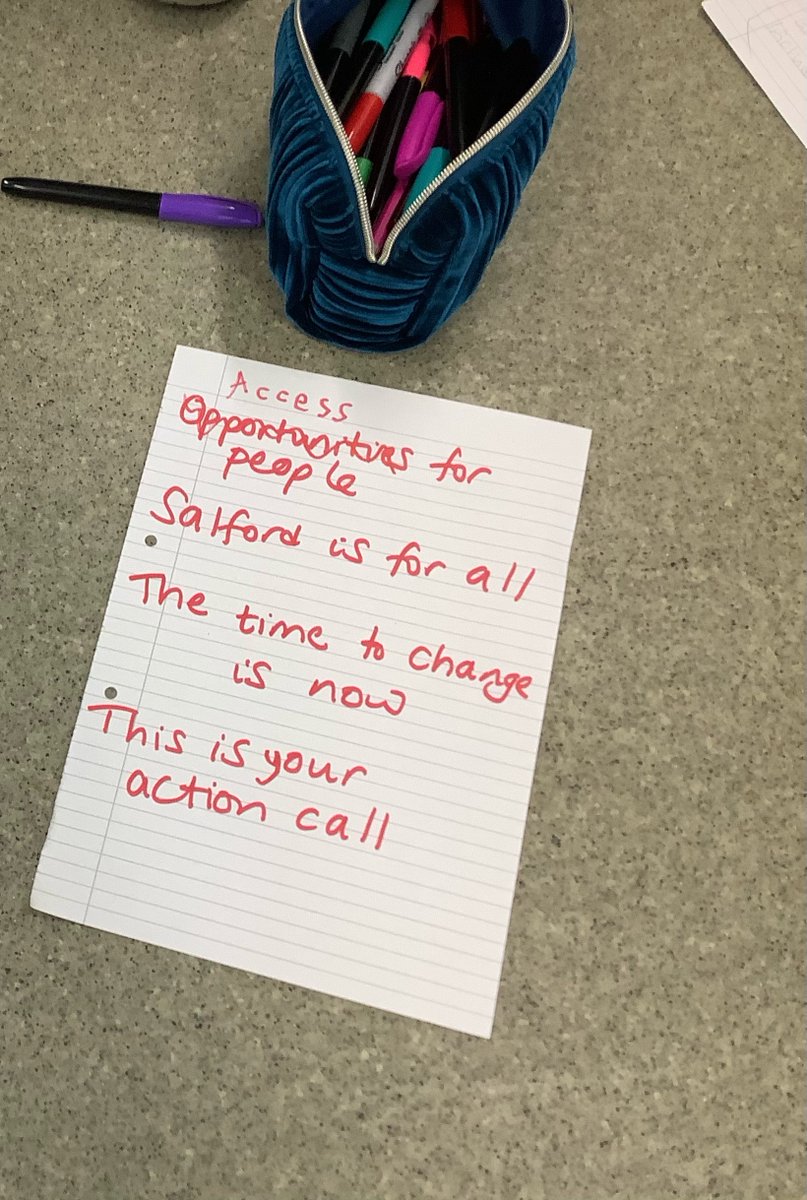 Access
Opportunities for
people
Salford is for all
The time to change
is now
This is your
action call